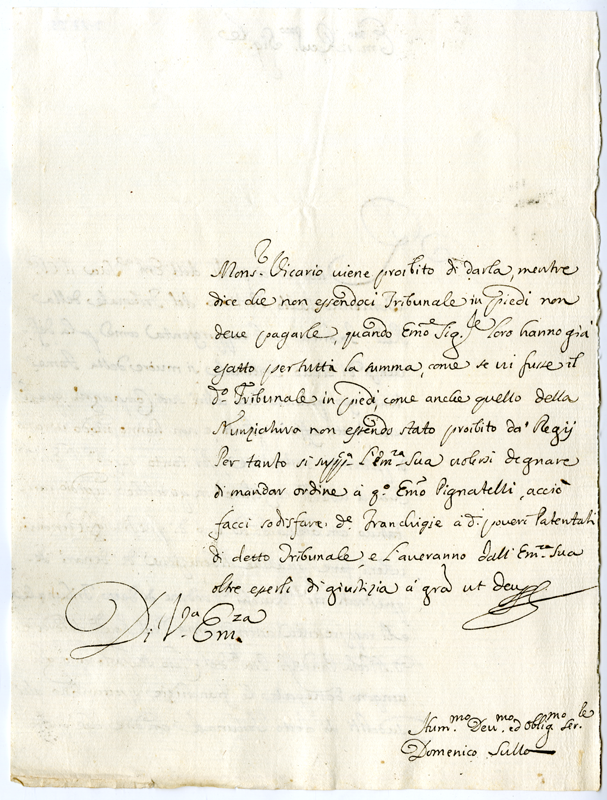 Mons.r Vicario viene proibito di darla, mentre
dice che non essendoci Tribunale in piedi non
deve pagarle, quando Emo Sig.re loro hanno già
esatto per tutta la summa, come se vi fusse il
do Tribunale in piedi, come anche quello della
Nunziatura non essendo stato proibito da Regij
Per tanto si supp.ca l'Em.za Sua volersi degnare
di mandar ordine à qo Emo Pignatelli, acciò
facci sodisfare de Franchigie à di poveri Patentati
di detto Tribunale, e l'averanno dall'Em.za Sua
oltre esserli di giustizia à gra ut Deus
Di V.a Em.za
Hum.mo Dev.mo ed oblig.mo Ser.le
Domenico Sullo